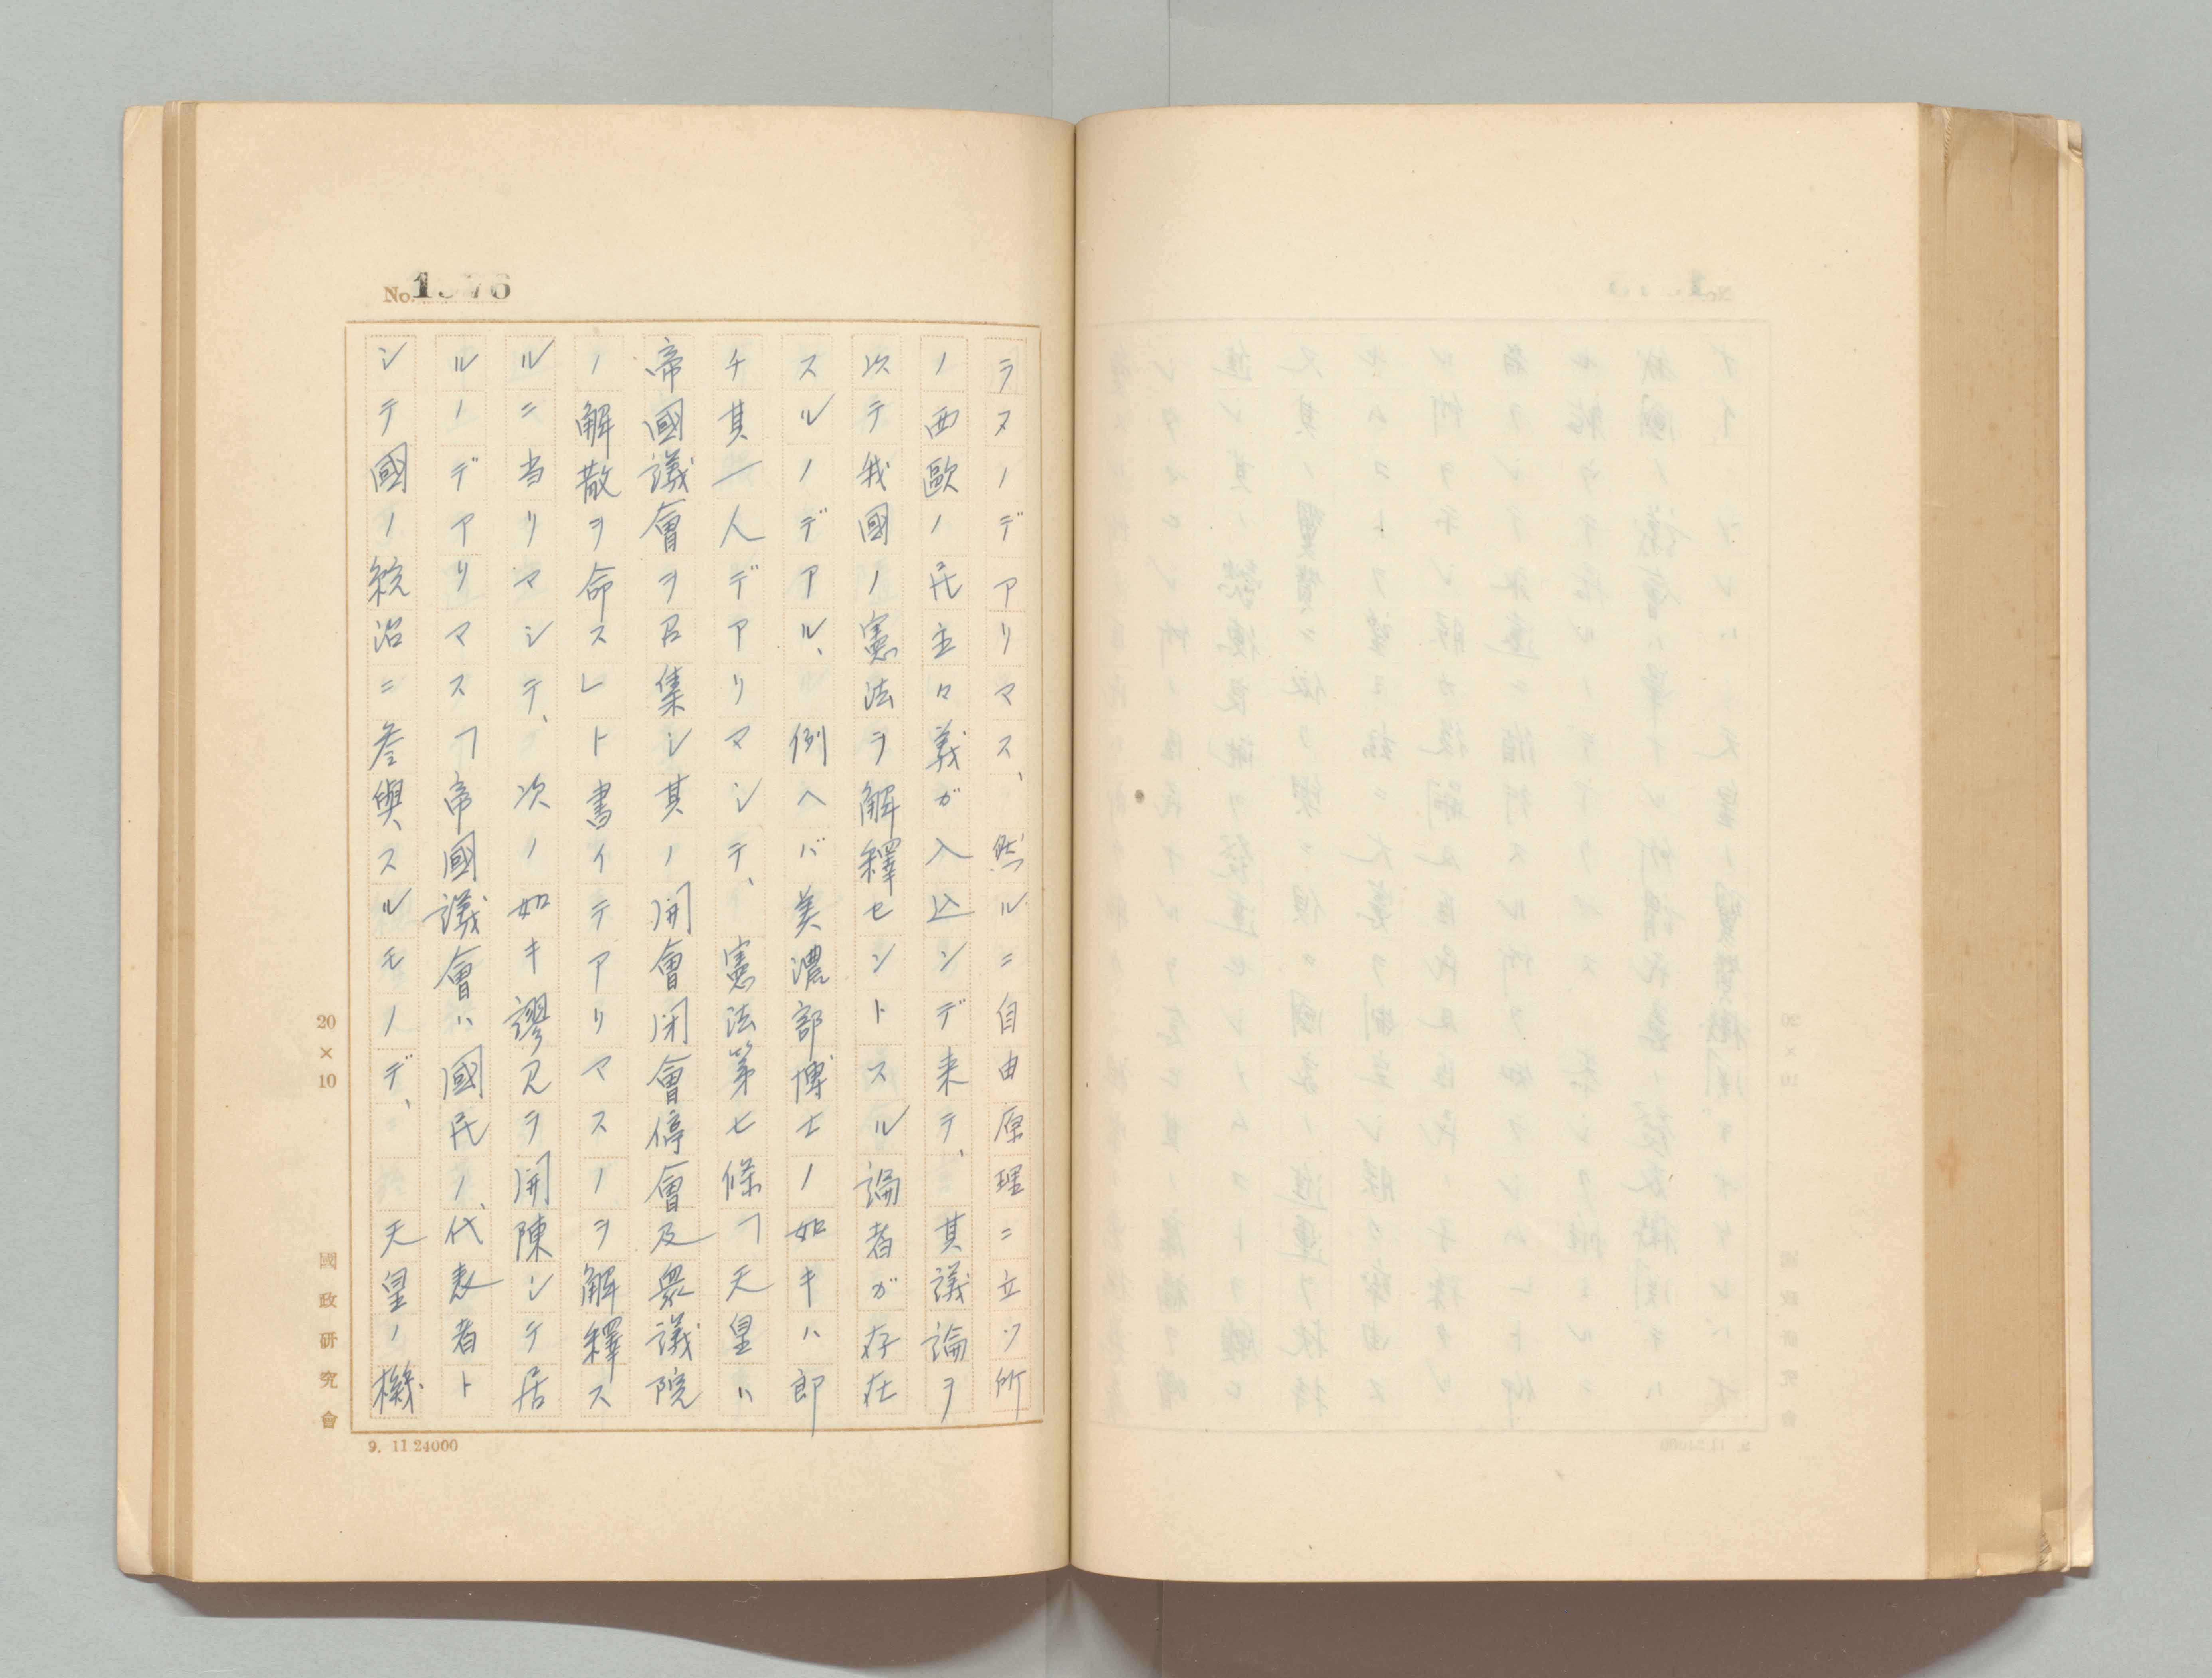 No.
ラヌノデアリマス、然ルニ自由原理ニ立ツ所
ノ西歐ノ民主々義ガ入込ンデ来テ、其議論ヲ
以テ我國ノ憲法ヲ解釋セントスル論者ガ存在
スルノデアル、例ヘバ美濃部博士ノ如キハ即
チ其一人デアリマシテ、憲法第七條「天皇ハ
帝國議會ヲ召集シ其ノ開會閉會停會及衆議院
ノ解散ヲ命スレト書イテアリマスノヲ解釋ス
ルニ当リマシテ、次ノ如キ謬見ヲ開陳シテ居
ルノデアリマス「帝國議會ハ國民ノ代表者ト
シテ國ノ統治ニ参與スルモノデ、天皇ノ機
20×10
國政研究會
9. 11 24000